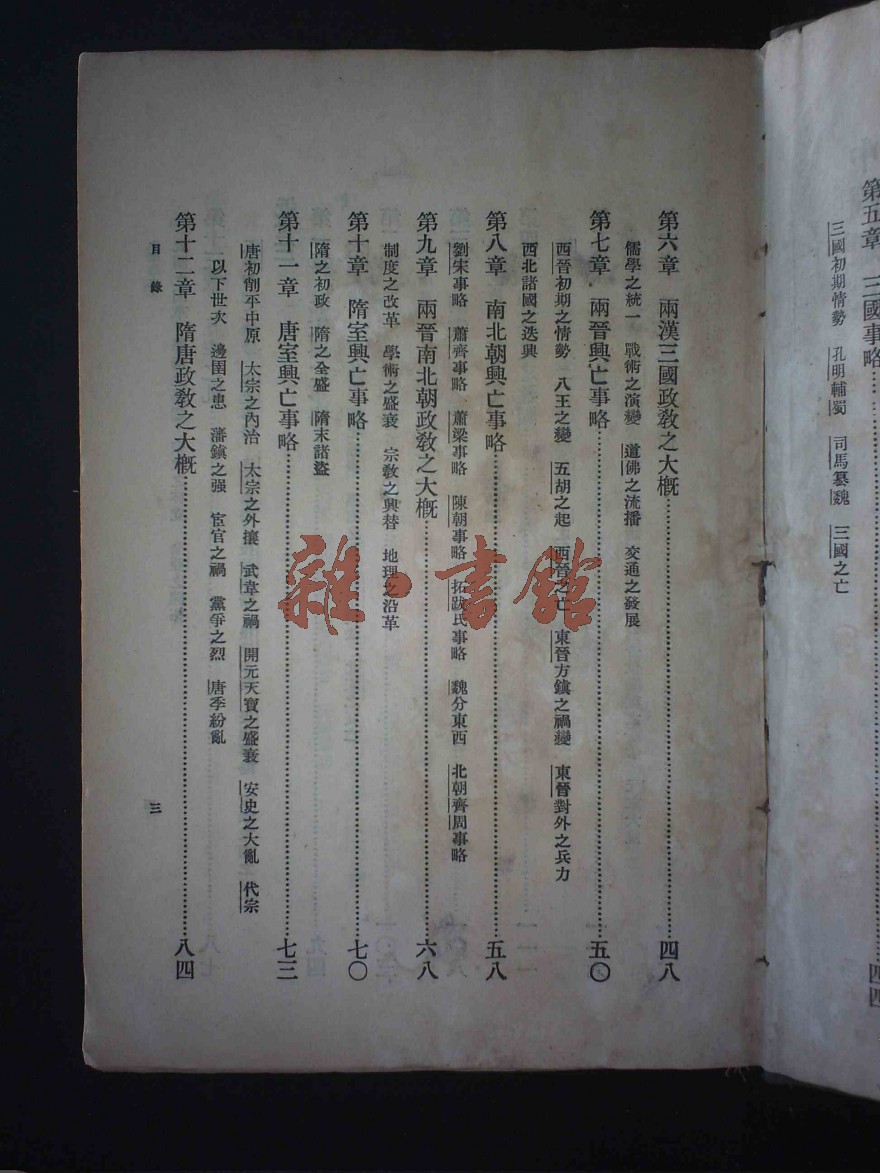 第五章　三國事略……四四
三國初期情勢　孔明輔蜀　司馬纂魏　三國之亡
第六章　兩漢三國政教之大概……四八
儒學之統一　戰術之演變　道佛之流播　交通之發展
第七章　兩晉興亡事略……五〇
西晉初期之情勢　八王之變　五胡之起　西晉之亡　東晉方鎮之禍變　東晉對外之兵力
西北諸國之迭興
第八章　南北朝興亡事略……五八
劉宋事略　蕭齊事略　蕭梁事略　陳朝事略　拓跋氏事略　魏分東西　北朝齊周事略
第九章　兩晉南北朝政教之大概……六八
制度之改革　學術之盛衰　宗教之興替　地理之沿革
第十章　隋室興亡事略……七〇
隋之初政　隋之全盛　隋末諸盜
第十一章　唐室興亡事略……七三
唐初削平中原　太宗之內治　太宗之外攘　武韋之禍　開元天寶之盛衰　安史之大亂　代宗
以下世次　邊圉之患　藩鎮之强　宦官之禍　黨爭之烈　唐季紛亂
第十二章　隋唐政教之大概……八四
目錄
三
雜·書館